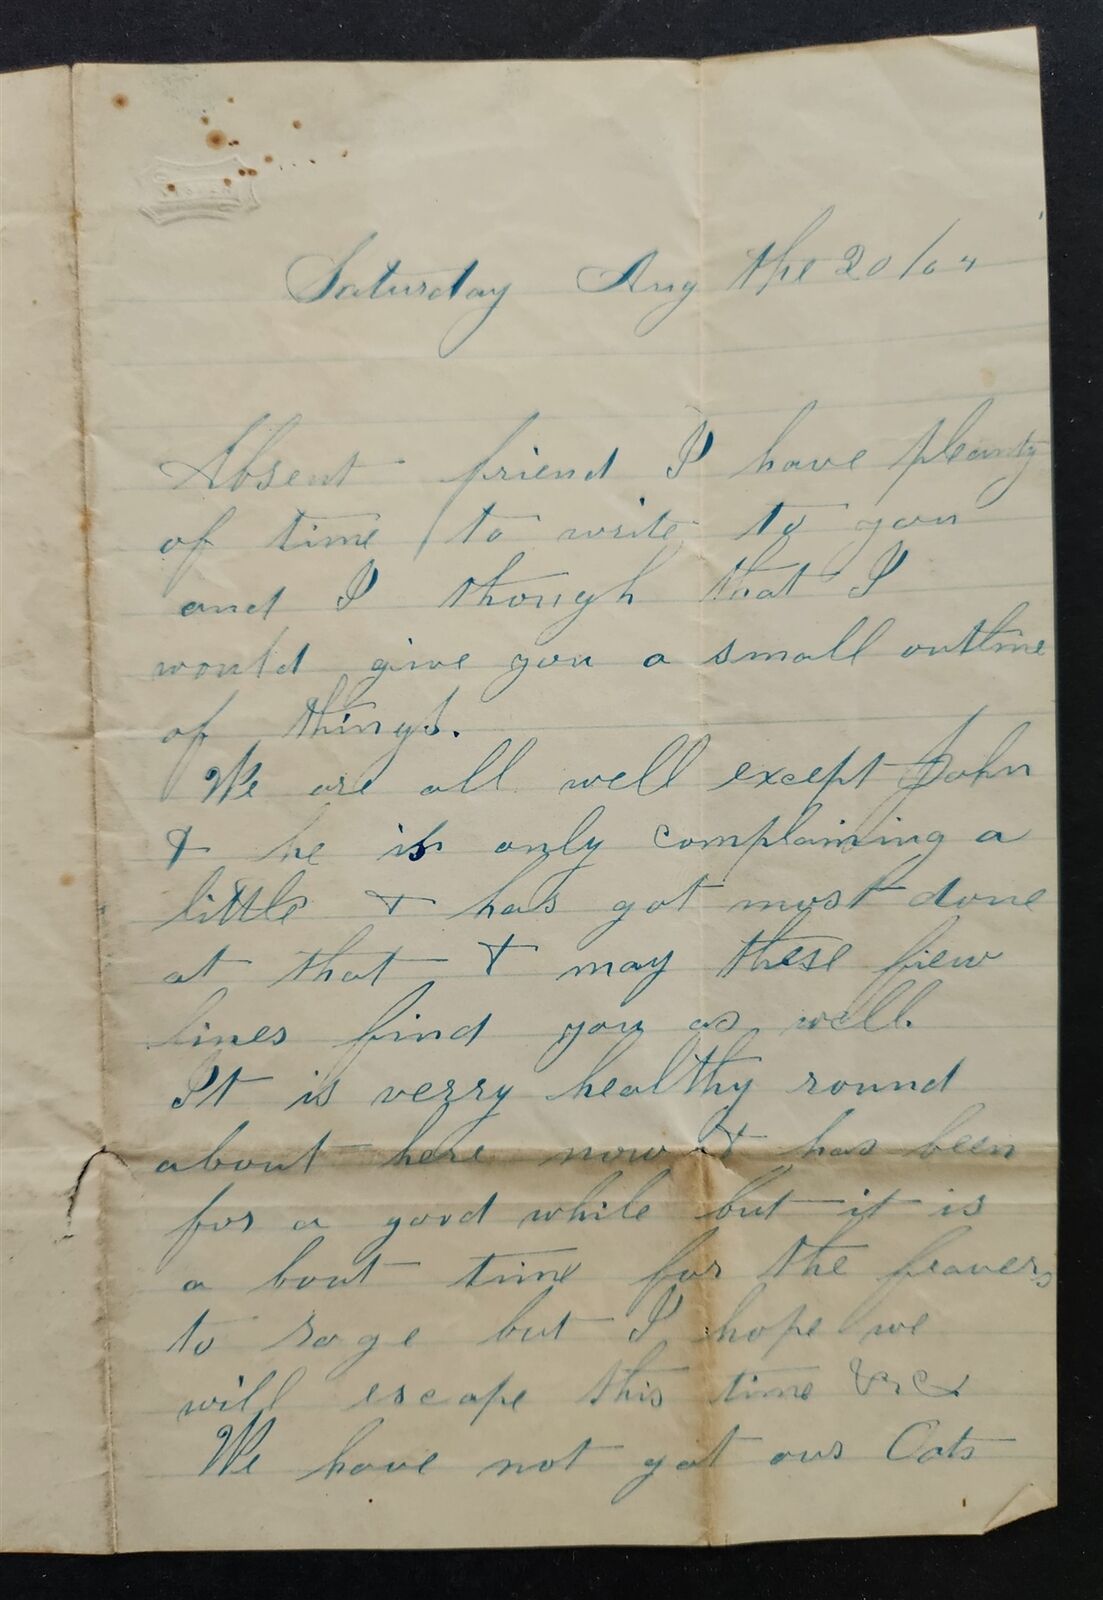 Saturday Aug the 20/64
Absent friend I have pleanty
of time to write to you
and I though that I
would give you a small outline
of things.
We are all well except John
& he is only complaining a
little & has got most done
at that & may these fiew
lines find you as well.
It is verry healthy round
about here now & has been
for a good while but it is
a bout time for the feavers
to rage but I hope we
will escape this time &c &
We have not got our Oats